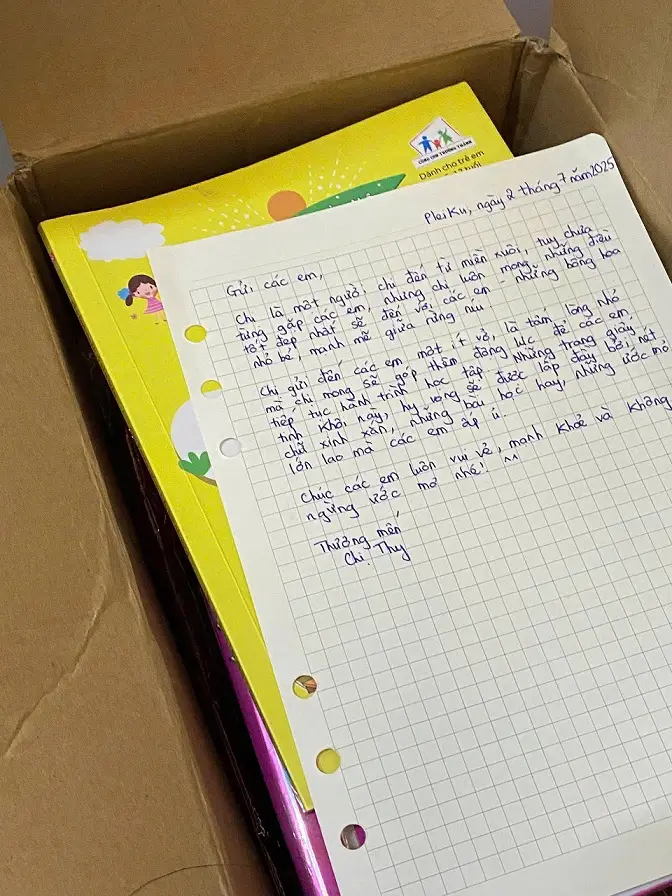 CÙNG CON TRƯỞNG THÀNH
Dành cho trẻ em
Pleiku, ngày 2 tháng 7 năm 2025
Gửi các em,
Chị là một người chị đến từ miền xuôi, tuy chưa
từng gặp các em, nhưng chị luôn mong những điều
tốt đẹp nhất sẽ đến với các em - những bông hoa
nhỏ bé, mạnh mẽ giữa rừng núi.
Chị gửi đến các em một ít vở, là tấm lòng nhỏ
mà chị mong sẽ góp thêm động lực để các em
tiếp tục hành trình học tập. Những trang giấy
tinh khôi này, hy vọng sẽ được lấp đầy bởi nét
chữ xinh xắn, những bài học hay, những ước mơ
lớn lao mà các em ấp ủ.
Chúc các em luôn vui vẻ, mạnh khoẻ và không
ngừng ước mơ nhé! ^^
Thương mến
Chị Thy